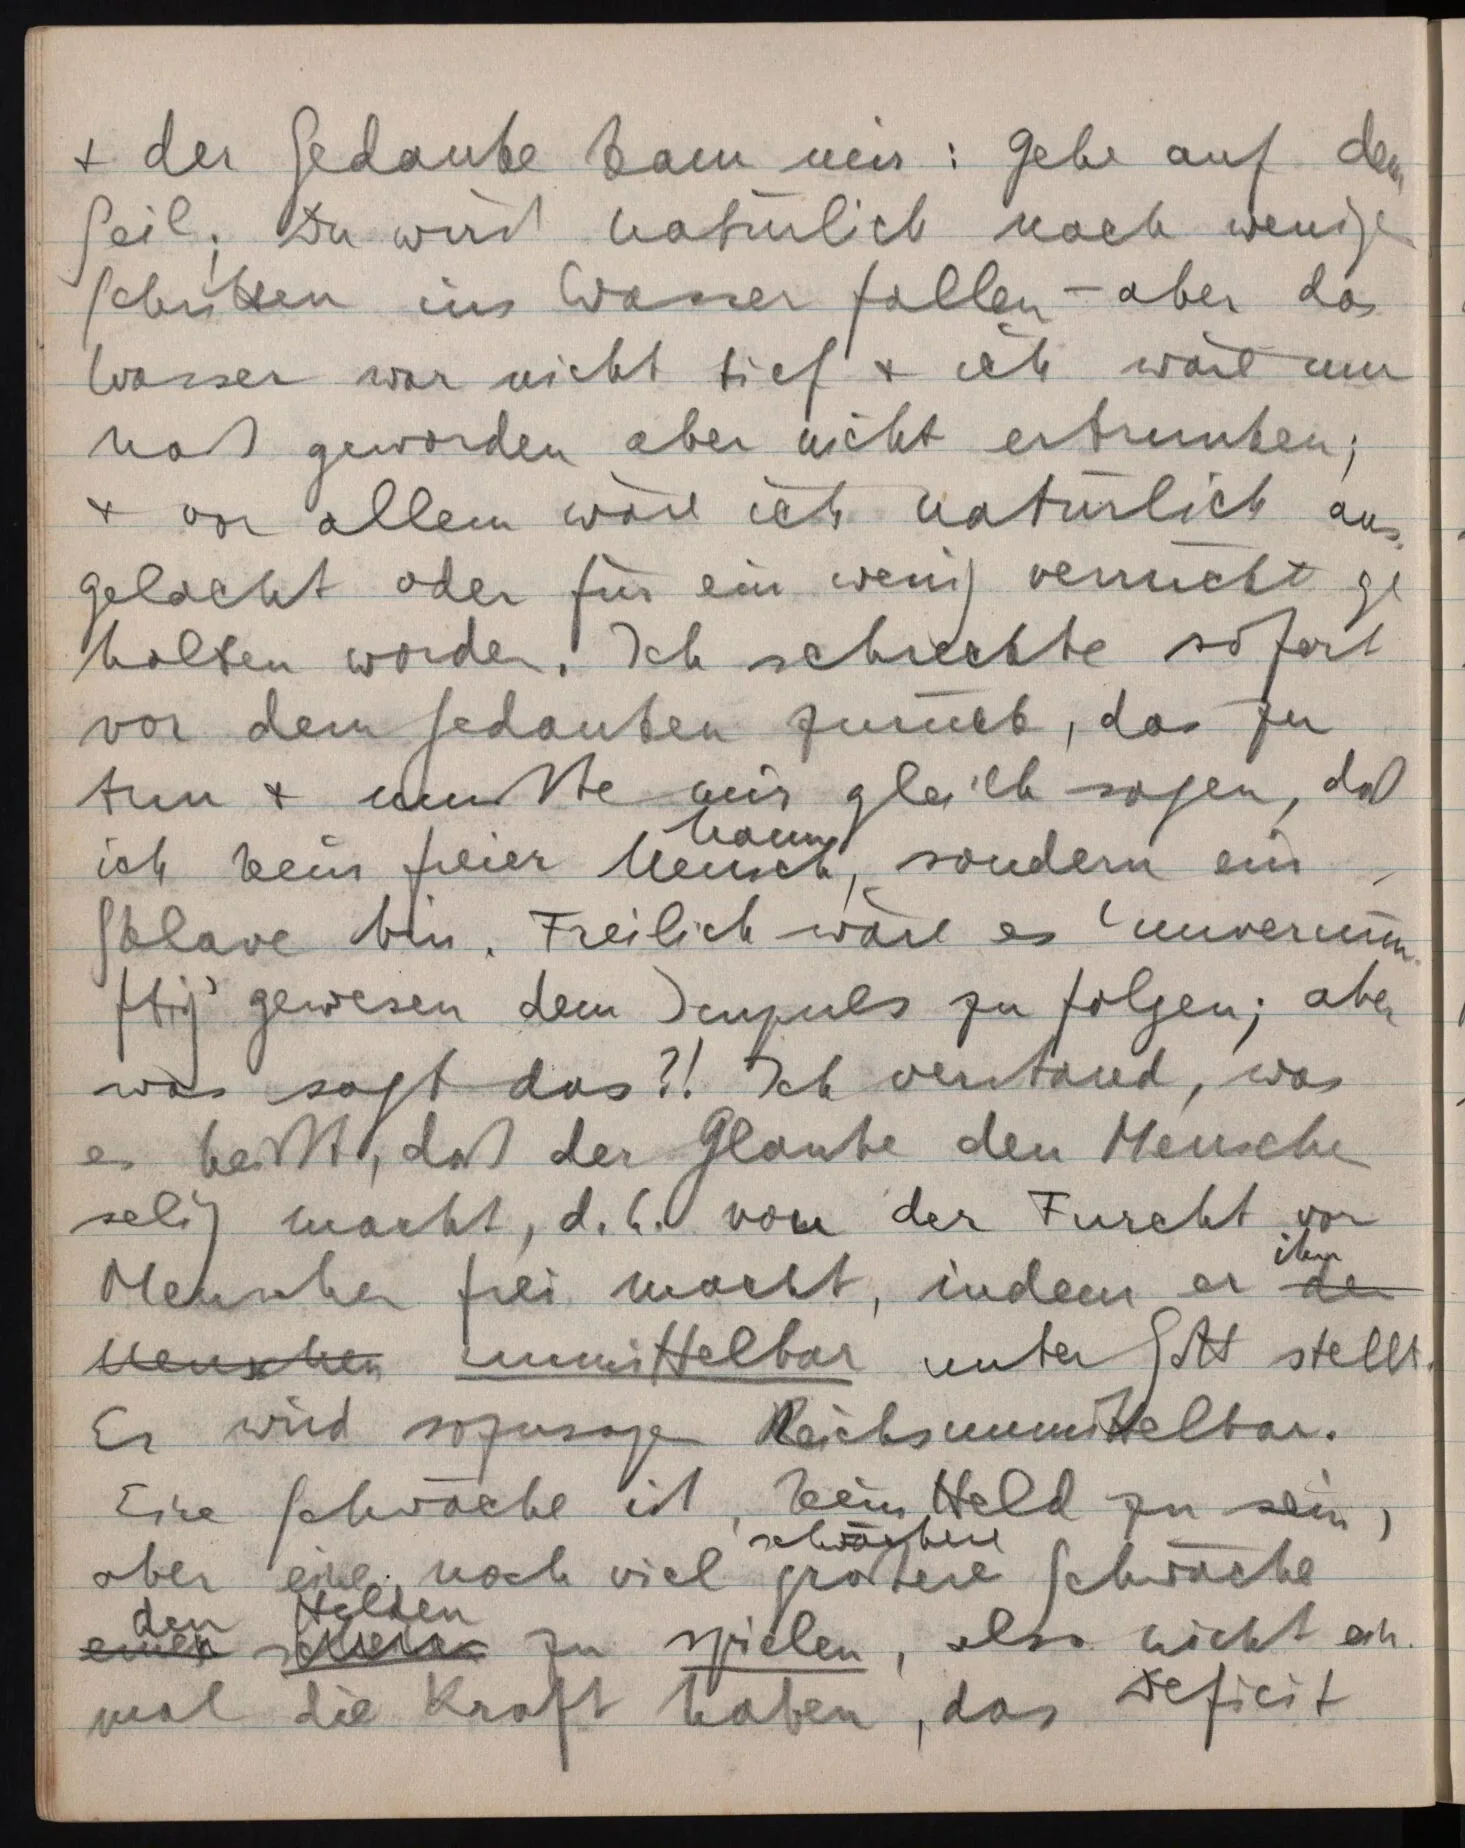 + der Gedanke kam mir: gehe auf dem
Seil; Du wirst natürlich nach wenige
Schritten ins Wasser fallen – aber das
Wasser war nicht tief + ich wäre nur
naß geworden aber nicht ertrunken;
+ vor allem wäre ich natürlich aus-
gelacht oder für ein wenig verrückt ge
halten worden. Ich schreckte sofort
vor dem Gedanken zurück, das zu
tun + mußte mir gleich sagen, daß
Mann
ich kein freier Mensch, sondern ein
Sklave bin. Freilich wäre es ‘unvernün-
ftig’ gewesen dem Impuls zu folgen; aber
was sagt das?! Ich verstand, was
es heißt, daß der Glaube den Mensche
selig macht, d.h. von der Furcht vor
ihn
Menschen frei macht, indem er den
Menschen unmittelbar unter Gott stellt.
Er wird sozusagen Reichsunmittelbar.
Eine Schwäche ist, kein Held zu sein,
schwächere
aber eine noch viel größere Schwäche
den Helden
einen zu spielen, also nicht ein-
mal die Kraft haben, das Deficit